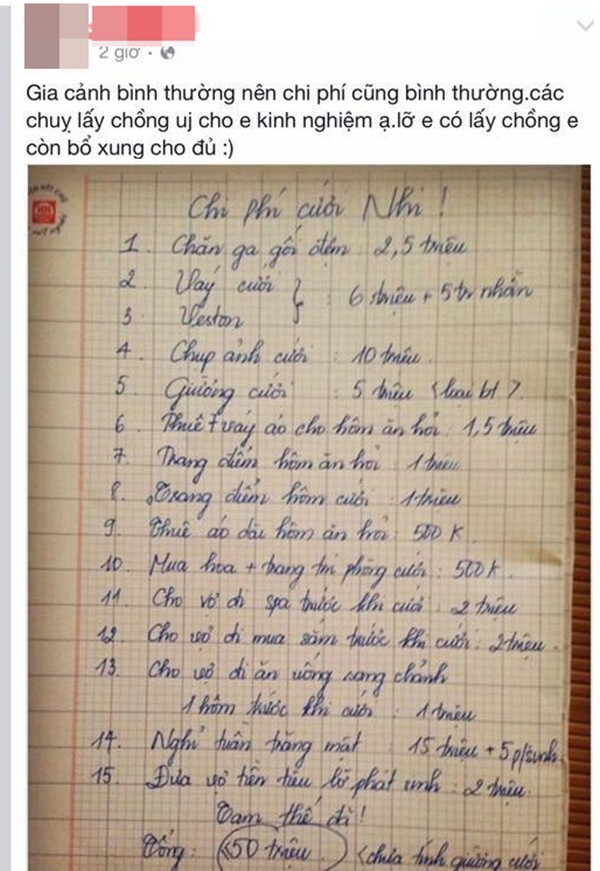 2 giờ ·
Gia cảnh bình thường nên chi phí cũng bình thường.các
chuỵ lấy chồng uj cho e kinh nghiệm ạ.lỡ e có lấy chồng e
còn bổ xung cho đủ :)
Chi phí cưới Nhi !
1. Chăn ga gối đệm 2,5 triệu
2. Váy cưới
} : 6 triệu + 5tr nhẫn
3. Veston
4. Chụp ảnh cưới : 10 triệu.
5. Giường cưới : 5 triệu < loại bt >.
6. Thuê + váy áo cho hôm ăn hỏi : 1,5 triệu
7. Trang điểm hôm ăn hỏi : 1 triệu
8. Trang điểm hôm cưới : 1 triệu
9. Thuê áo dài hôm ăn hỏi : 500 K.
10. Mua hoa + trang trí phòng cưới : 500 K.
11. Cho vợ đi spa trước khi cưới : 2 triệu
12. Cho vợ đi mua sắm trước khi cưới : 2 triệu.
13. Cho vợ đi ăn uống sang chảnh
1 hôm trước khi cưới : 1 triệu
14. Nghỉ tuần trăng mật : 15 triệu + 5 p/sinh.
15. Đưa vợ tiền tiêu lỡ phát sinh : 2 triệu.
Tạm thế đã !
Tổng : 50 triệu. < chưa tính giường cưới